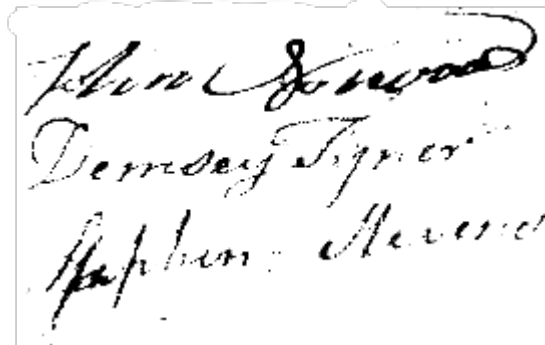 John Norwood
Demsey Tyner
Stephen Stevens